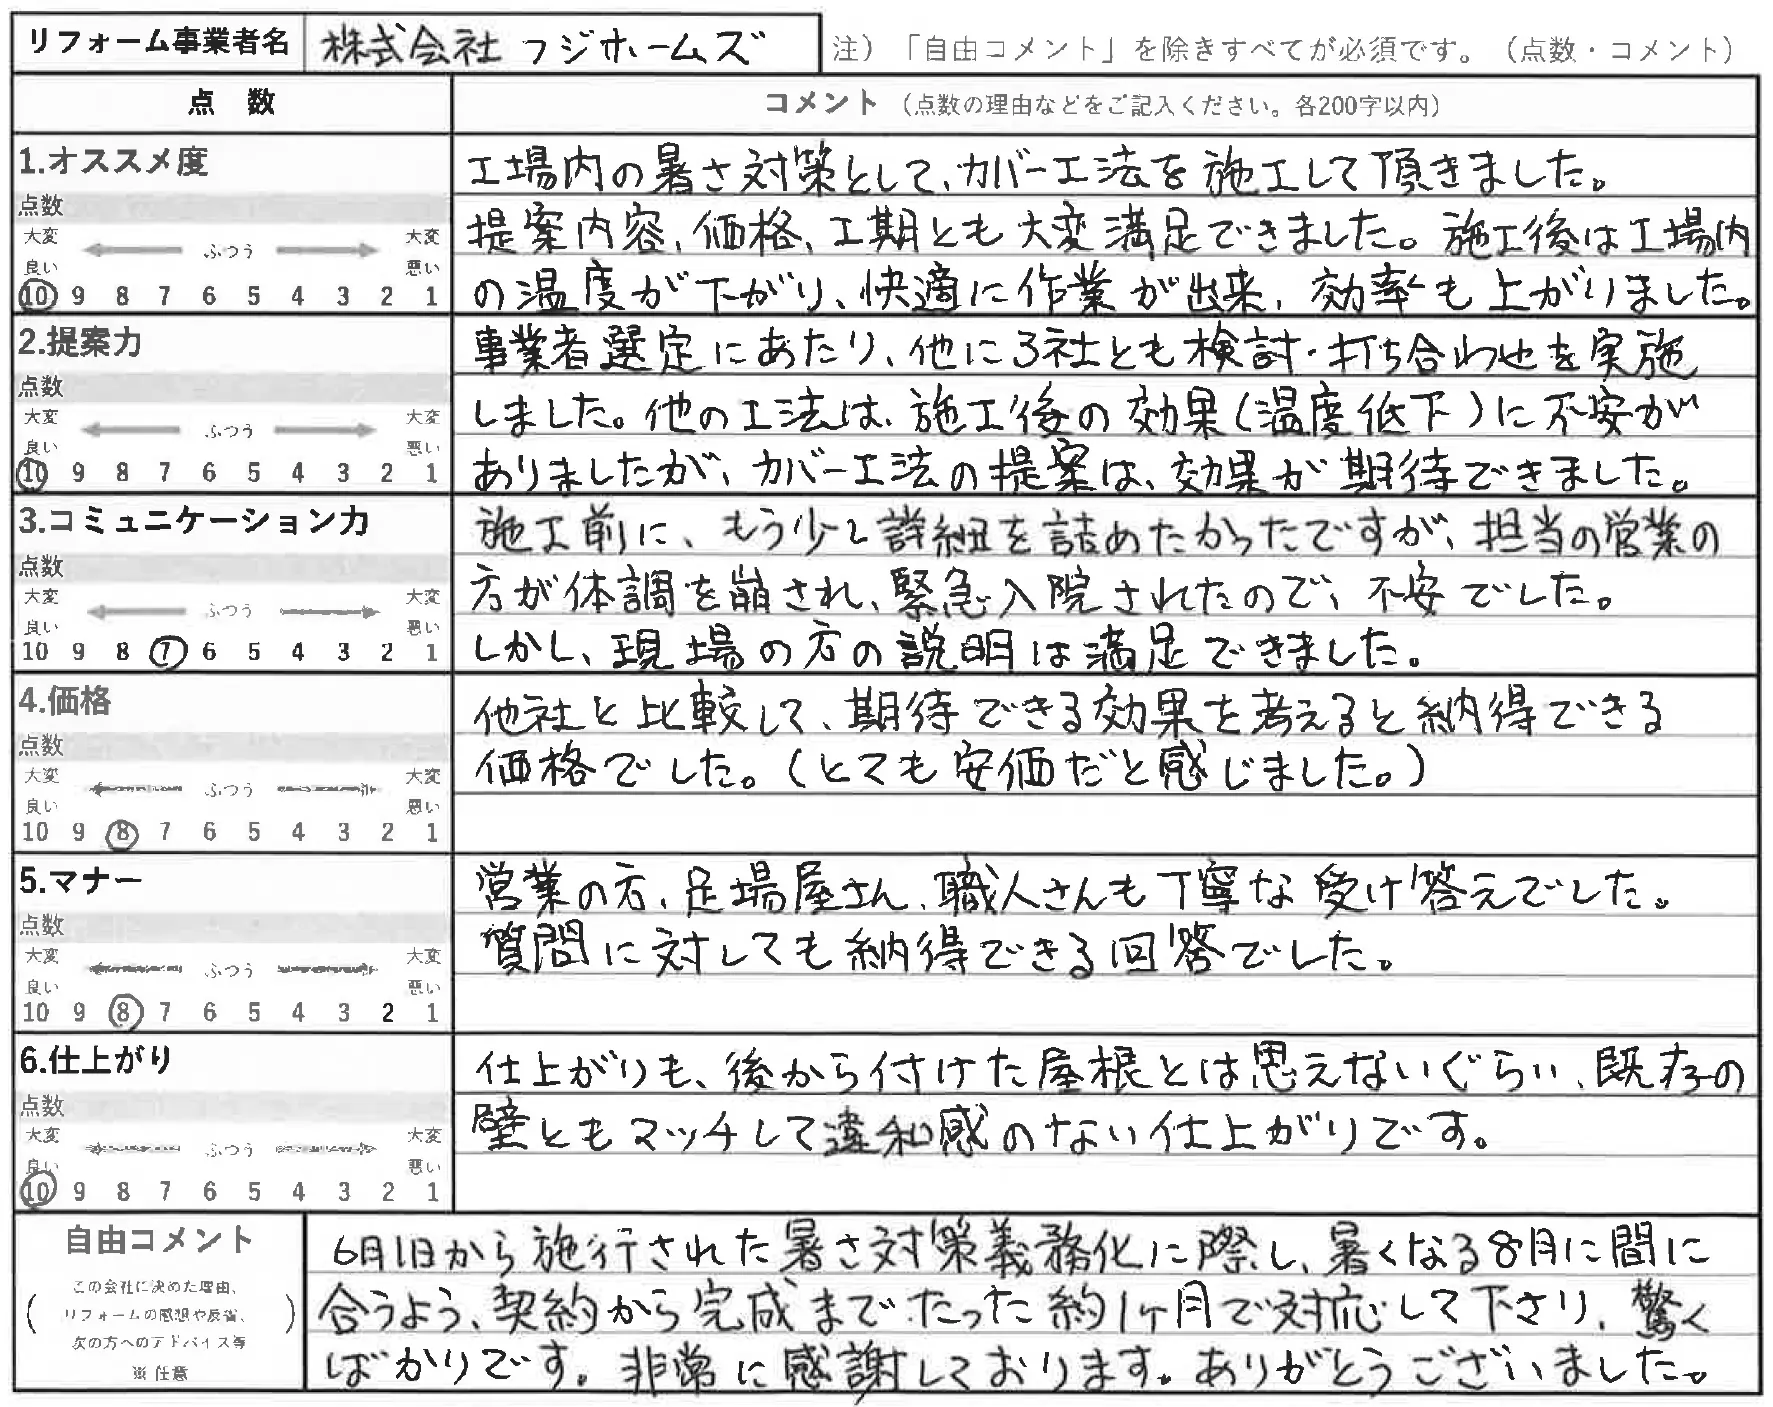 リフォーム事業者名 株式会社 フジホームズ 注）「自由コメント」を除きすべてが必須です。（点数・コメント）
点 数 コメント（点数の理由などをご記入ください。各200字以内）
1.オススメ度
点数
大変 良い ふつう 大変 悪い
10 9 8 7 6 5 4 3 2 1
工場内の暑さ対策として、カバー工法を施工して頂きました。
提案内容、価格、工期とも大変満足できました。施工後は工場内
の温度が下がり、快適に作業が出来、効率も上がりました。
2.提案力
点数
大変 良い ふつう 大変 悪い
10 9 8 7 6 5 4 3 2 1
事業者選定にあたり、他に3社とも検討・打ち合わせを実施
しました。他の工法は、施工後の効果(温度低下)に不安が
ありましたが、カバー工法の提案は、効果が期待できました。
3.コミュニケーション力
点数
大変 良い ふつう 大変 悪い
10 9 8 7 6 5 4 3 2 1
施工前に、もう少し詳細を詰めたかったですが、担当の営業の
方が体調を崩され、緊急入院されたので、不安でした。
しかし、現場の方の説明は満足できました。
4.価格
点数
大変 良い ふつう 大変 悪い
10 9 8 7 6 5 4 3 2 1
他社と比較して、期待できる効果を考えると納得できる
価格でした。(とても安価だと感じました。)
5.マナー
点数
大変 良い ふつう 大変 悪い
10 9 8 7 6 5 4 3 2 1
営業の方、足場屋さん、職人さんも丁寧な受け答えでした。
質問に対しても納得できる回答でした。
6.仕上がり
点数
大変 良い ふつう 大変 悪い
10 9 8 7 6 5 4 3 2 1
仕上がりも、後から付けた屋根とは思えないぐらい、既存の
壁ともマッチして違和感のない仕上がりです。
自由コメント
この会社に決めた理由、
リフォームの感想や反省、
次の方へのアドバイス等
※ 任意
6月1日から施行された暑さ対策義務化に際し、暑くなる8月に間に
合うよう、契約から完成までたった約1ヶ月で対応して下さり、驚く
ばかりです。非常に感謝しております。ありがとうございました。